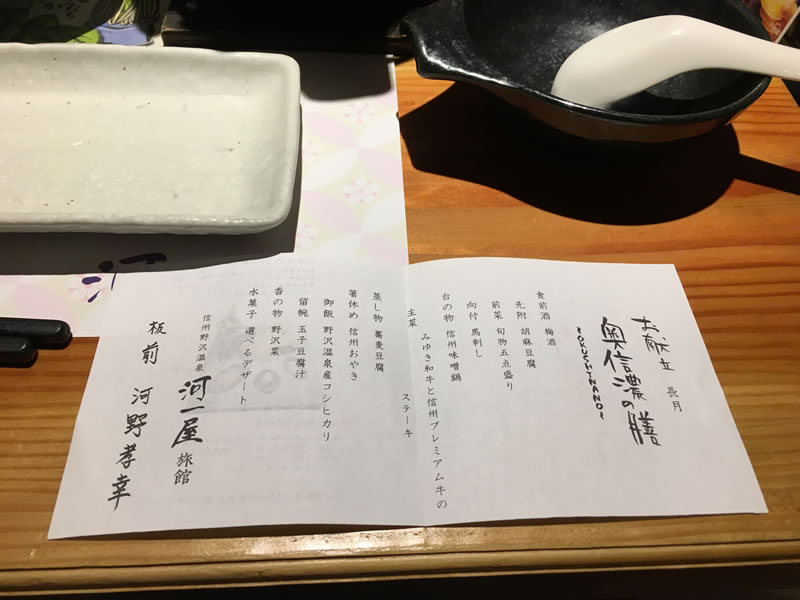 お献立　長月
奥信濃の膳
(OKUSHINANO)
食前酒　梅酒
先附　胡麻豆腐
前菜　旬物五点盛り
向付　馬刺し
台の物　信州味噌鍋
主菜　みゆき和牛と信州プレミアム牛の
ステーキ
蒸し物　蕎麦豆腐
箸休め　信州おやき
御飯　野沢温泉産コシヒカリ
留椀　玉子豆腐汁
香の物　野沢菜
水菓子　選べるデザート
信州野沢温泉
河一屋旅館
板前　河野孝幸